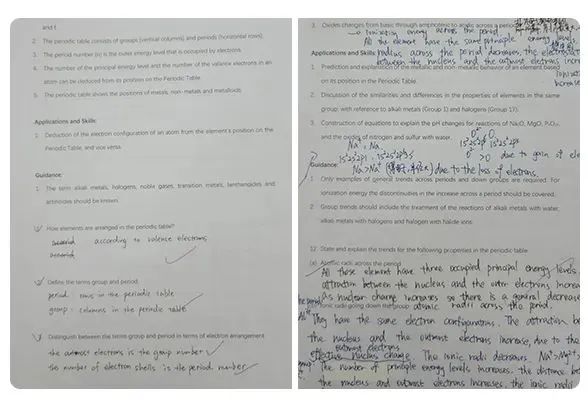 and f.
2. The periodic table consists of groups (vertical columns) and periods (horizontal rows).
3. The period number (n) is the outer energy level that is occupied by electrons.
4. The number of the principal energy level and the number of the valence electrons in an
atom can be deduced from its position on the Periodic Table.
5. The periodic table shows the positions of metals, non-metals and metalloids.
Applications and Skills:
1. Deduction of the electron configuration of an atom from the element's position on the
Periodic Table, and vice versa.
Guidance:
1. The term alkali metals, halogens, noble gases, transition metals, lanthanoides and
actinoides should be known.
How elements are arranged in the periodic table?
according to valence electrons
Define the terms group and period.
period: rows in the periodic table
group: columns in the periodic table
Distinguish between the terms group and period in terms of electron arrangement
the outmost electrons is the group number
the number of electron shells is the period number
3. Oxides changes from basic through amphoteric to acidic across a period
Ionization energy across the period
All the element have the same principle energy level
radius across the period decreases, the
Applications and Skills:
between the nucleus and the outmost electrons
1. Prediction and explanation of the metallic and non-metallic behavior of an element based
on its position in the Periodic Table.
2. Discussion of the similarities and differences in the properties of elements in the same
group, with reference to alkali metals (Group 1) and halogens (Group 17).
3. Construction of equations to explain the pH changes for reactions of Na₂O, MgO, P₄O₁₀,
and the oxides of nitrogen and sulfur with water.
Na⁺, Na
due to gain of
Guidance:
Na>Na⁺ due to the loss of electrons.
1. Only examples of general trends across periods and down groups are required. For
ionization energy the discontinuities in the increase across a period should be covered.
2. Group trends should include the treatment of the reactions of alkali metals with water,
alkali metals with halogens and halogen with halide ions.
12. State and explain the trends for the following properties in the periodic table
(a) Atomic radii across the period
All these element have three occupied principal energy levels
attraction between the nucleus and the outer electrons
As nuclear charge increases so there is a general decrease
atomic radii across the period.
Ionic radii going down the group
They have the same electron configurations. The attraction
the nucleus and the outmost electrons increase, due to the
outmost electrons
effective nucleus charge. The ionic radii decreases.
The number of principle energy levels increases, the distance
the nucleus and outmost electrons increases, the ionic radii